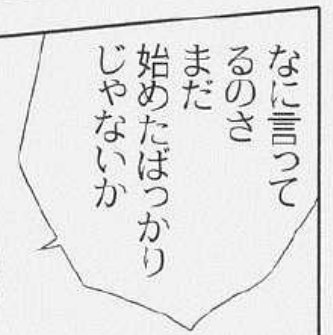 なに言って
るのさ
まだ
始めたばっかり
じゃないか